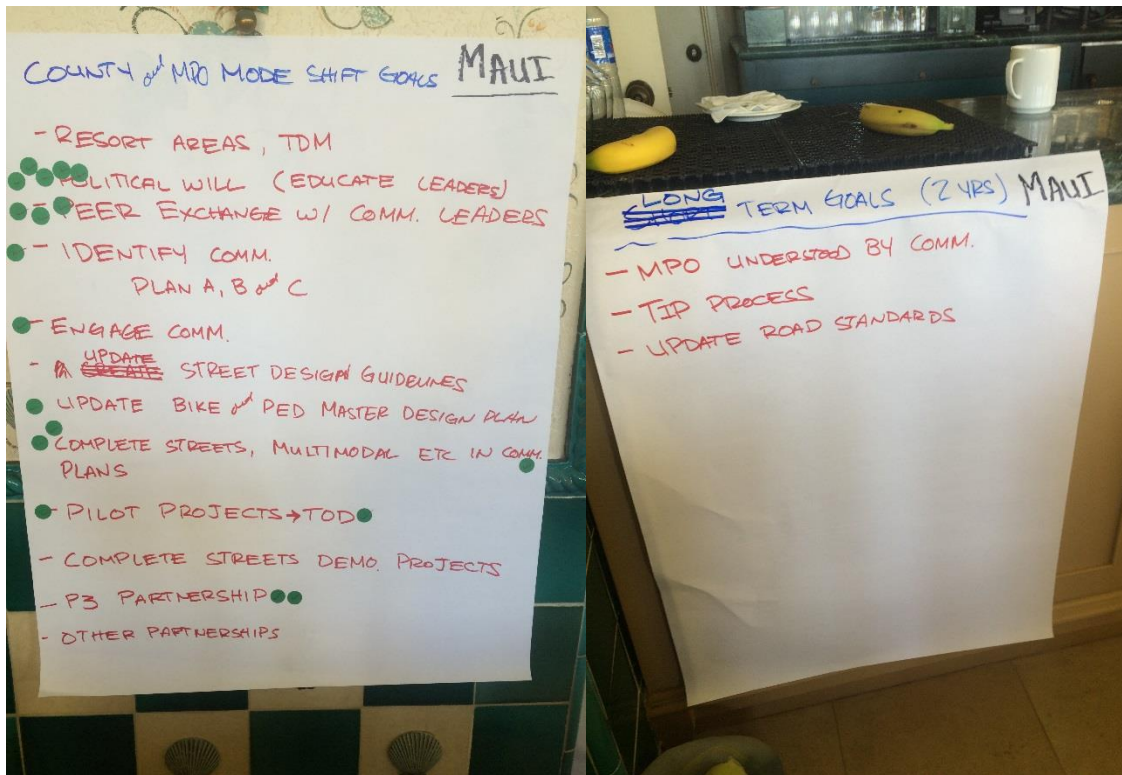 COUNTY and MPO MODE SHIFT GOALS MAUI
- RESORT AREAS, TDM
- POLITICAL WILL (EDUCATE LEADERS)
- PEER EXCHANGE W/ COMM. LEADERS
- IDENTIFY COMM.
PLAN A, B and C
- ENGAGE COMM.
- UPDATE STREET DESIGN GUIDELINES
UPDATE BIKE and PED MASTER DESIGN PLAN
COMPLETE STREETS, MULTIMODAL ETC IN COMM.
PLANS
- PILOT PROJECTS → TOD
- COMPLETE STREETS DEMO. PROJECTS
- P3 PARTNERSHIP
- OTHER PARTNERSHIPS
LONG TERM GOALS (2 YRS) MAUI
- MPO UNDERSTOOD BY COMM.
- TIP PROCESS
- UPDATE ROAD STANDARDS